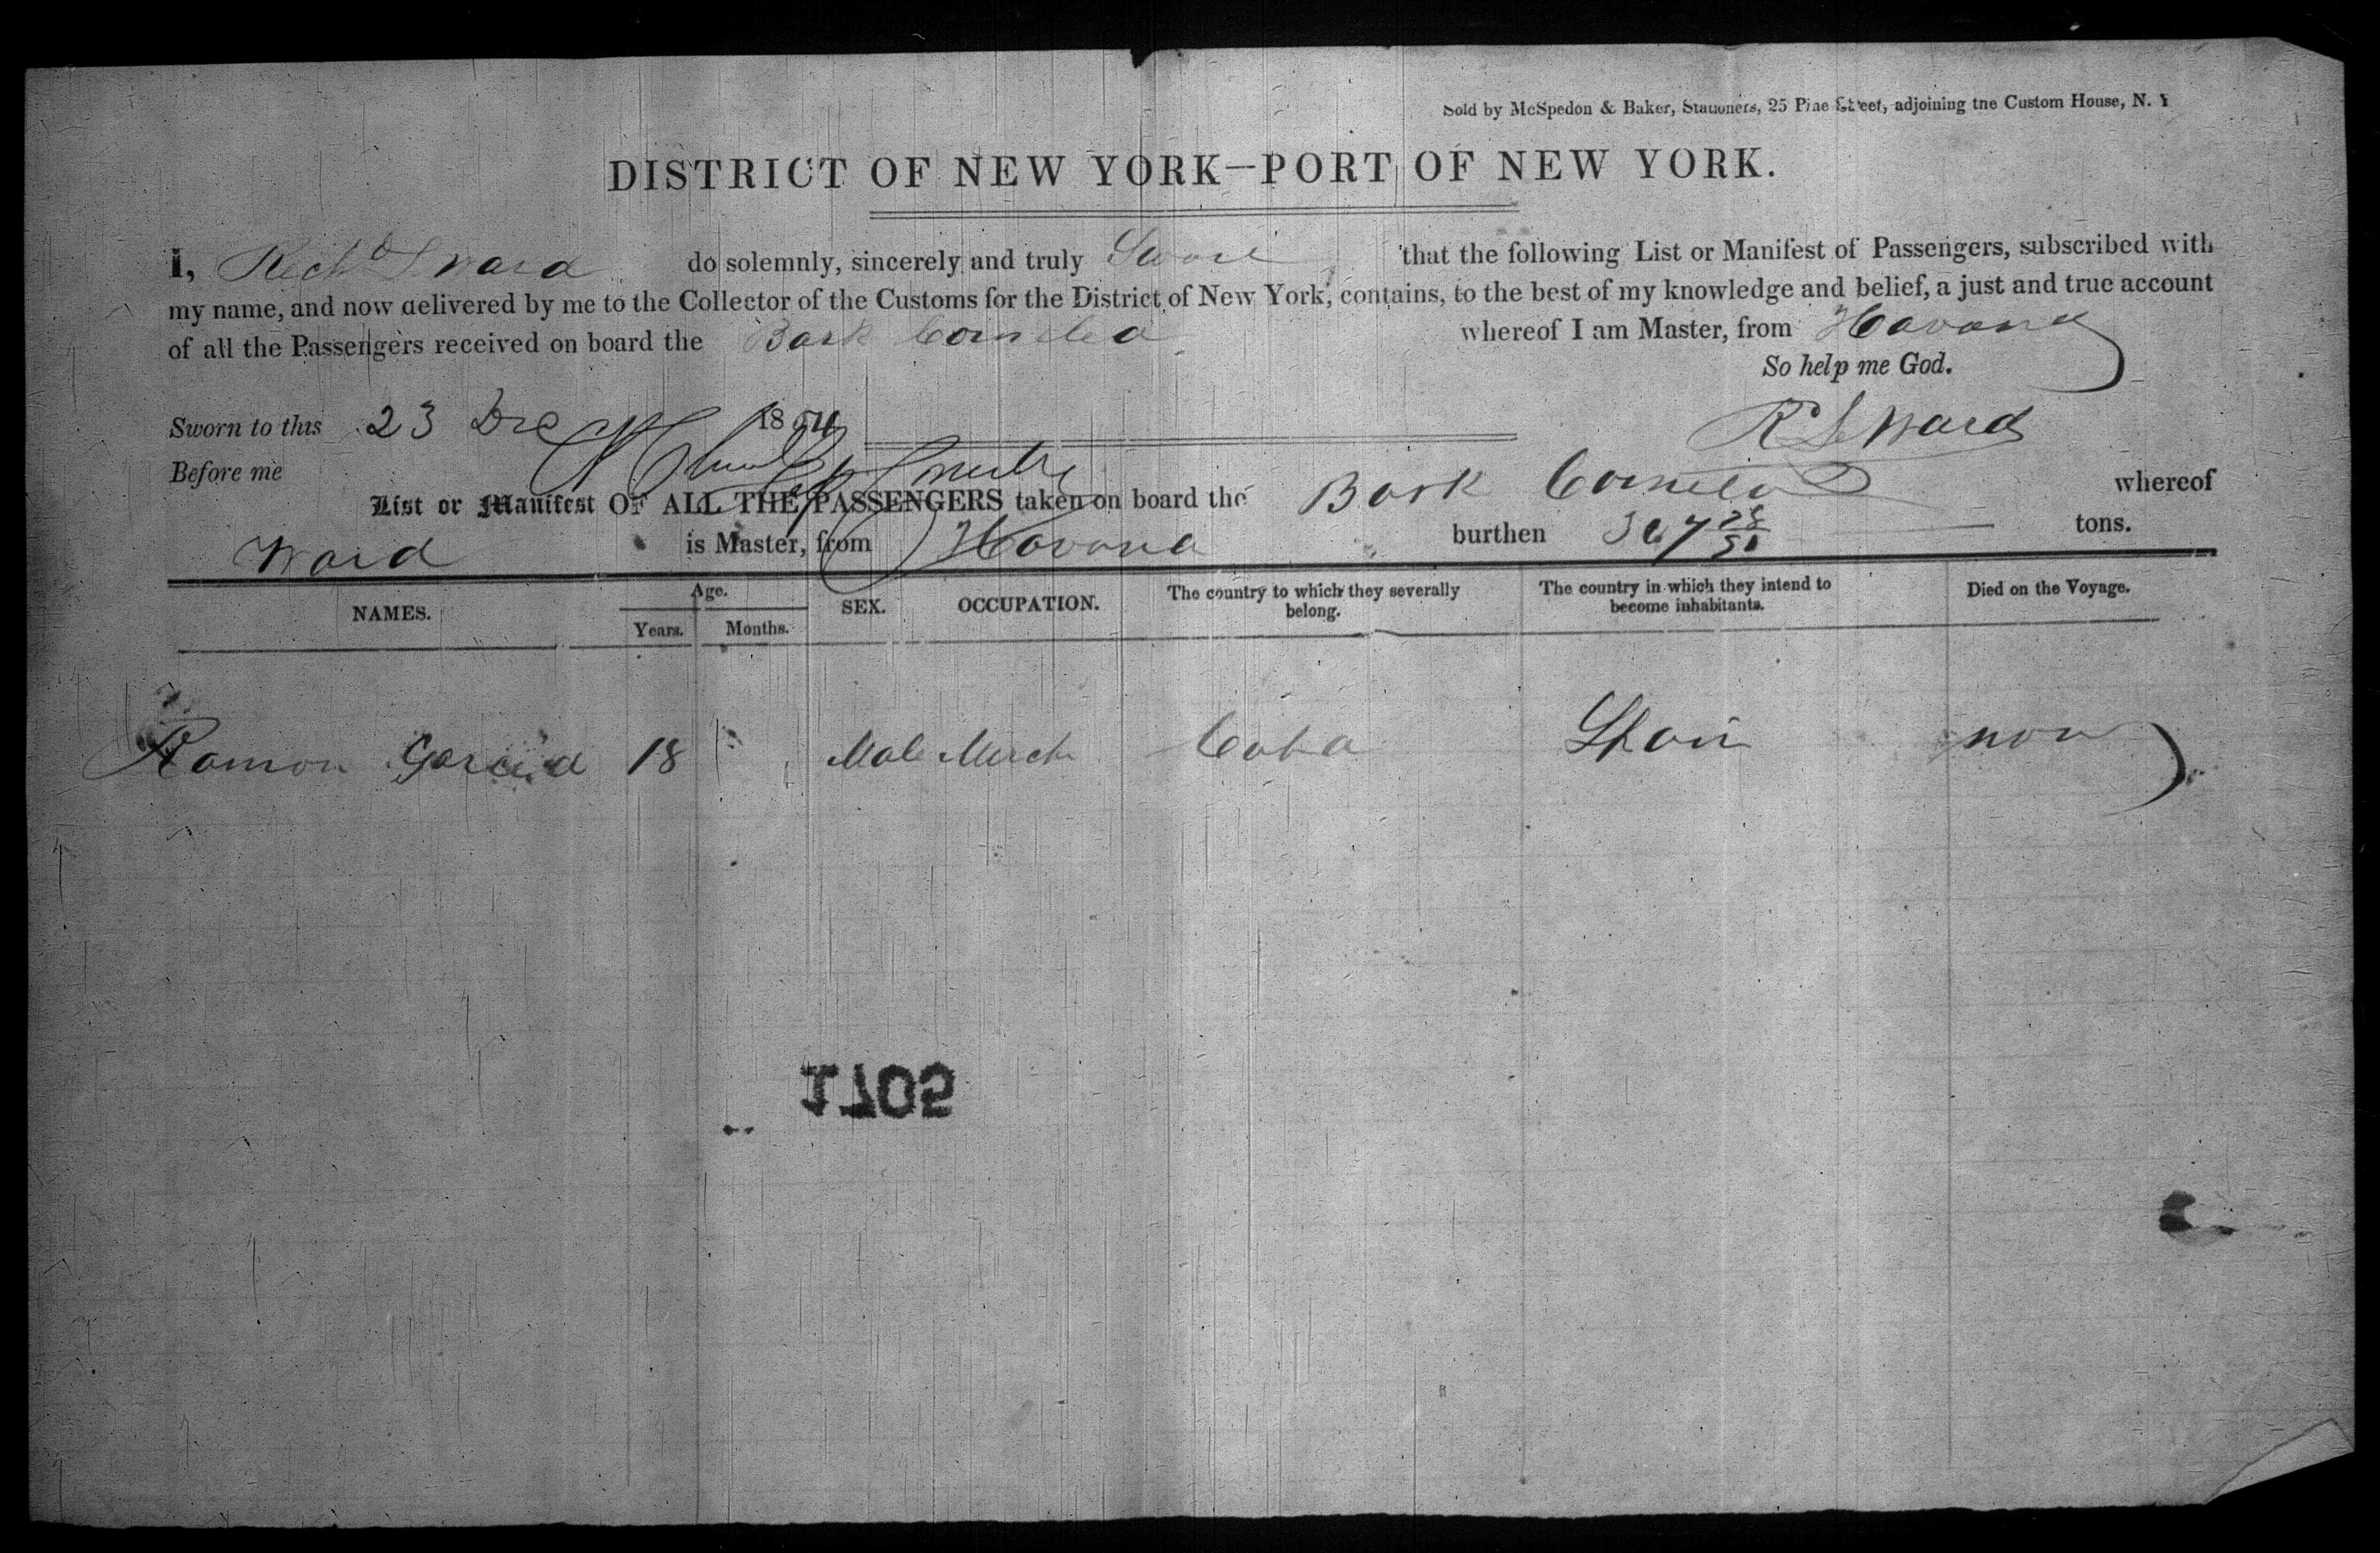 Sold by McSpedon & Baker, Stationers, 25 Pine Street, adjoining the Custom House, N. Y
DISTRICT OF NEW YORK—PORT OF NEW YORK.
I, Rich^d S Ward do solemnly, sincerely and truly Swear that the following List or Manifest of Passengers, subscribed with
my name, and now delivered by me to the Collector of the Customs for the District of New York, contains, to the best of my knowledge and belief, a just and true account
of all the Passengers received on board the Bark whereof I am Master, from Havana
So help me God.
Sworn to this 23 Dec 1854 R S Ward
Before me
List or Manifest OF ALL THE PASSENGERS taken on board the Bark whereof
Ward is Master, from Havana burthen tons.
NAMES. Age. SEX. OCCUPATION. The country to which they severally belong. The country in which they intend to become inhabitants. Died on the Voyage.
Years. Months.
Ramon Garcia 18 Male Merch Cuba Spain non
1705